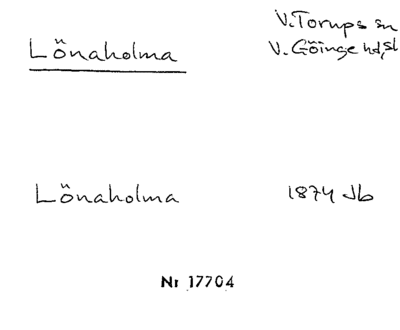 V. Torups sn
Lönaholma V. Göinge hd, sk
Lönaholma 1874 Jb
Nr 17704